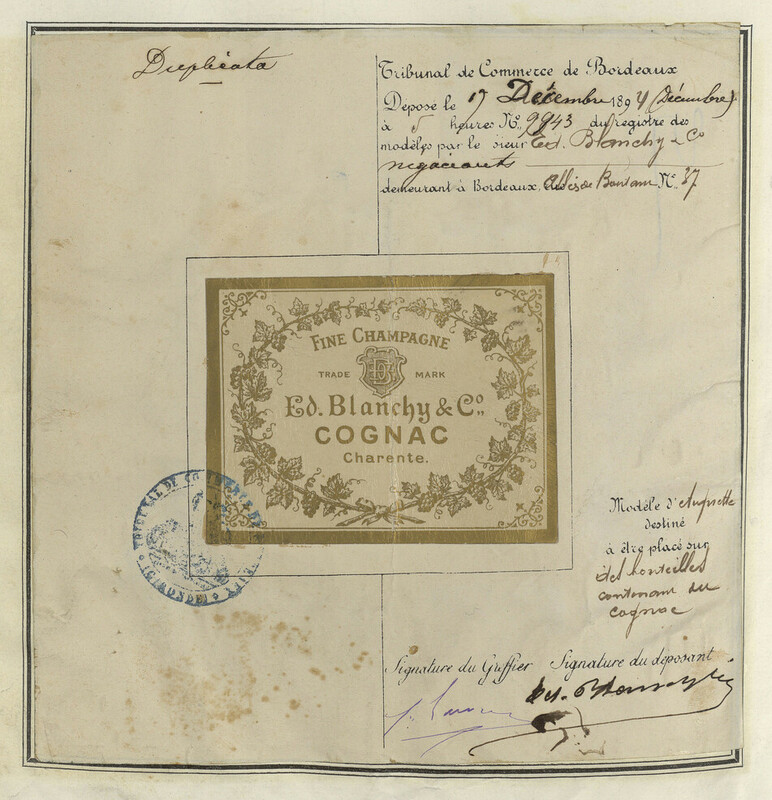 Duplicata
Tribunal de Commerce de Bordeaux
Déposé le 17 Décembre 1894 (Décembre)
à 5 heures No. 9943 du registre des
modèles par le sieur Ed. Blanchy & Co
negociants
demeurant à Bordeaux, No. 37
FINE CHAMPAGNE
TRADE MARK
Ed. Blanchy & Co.
COGNAC
Charente.
TRIBUNAL DE COMMERCE DE BORDEAUX
(GIRONDE)
Modèle d'étiquette
destiné
à être placé sur
des bouteilles
contenant du
cognac
Signature du Greffier Signature du déposant
Ed. Blanchy & Co